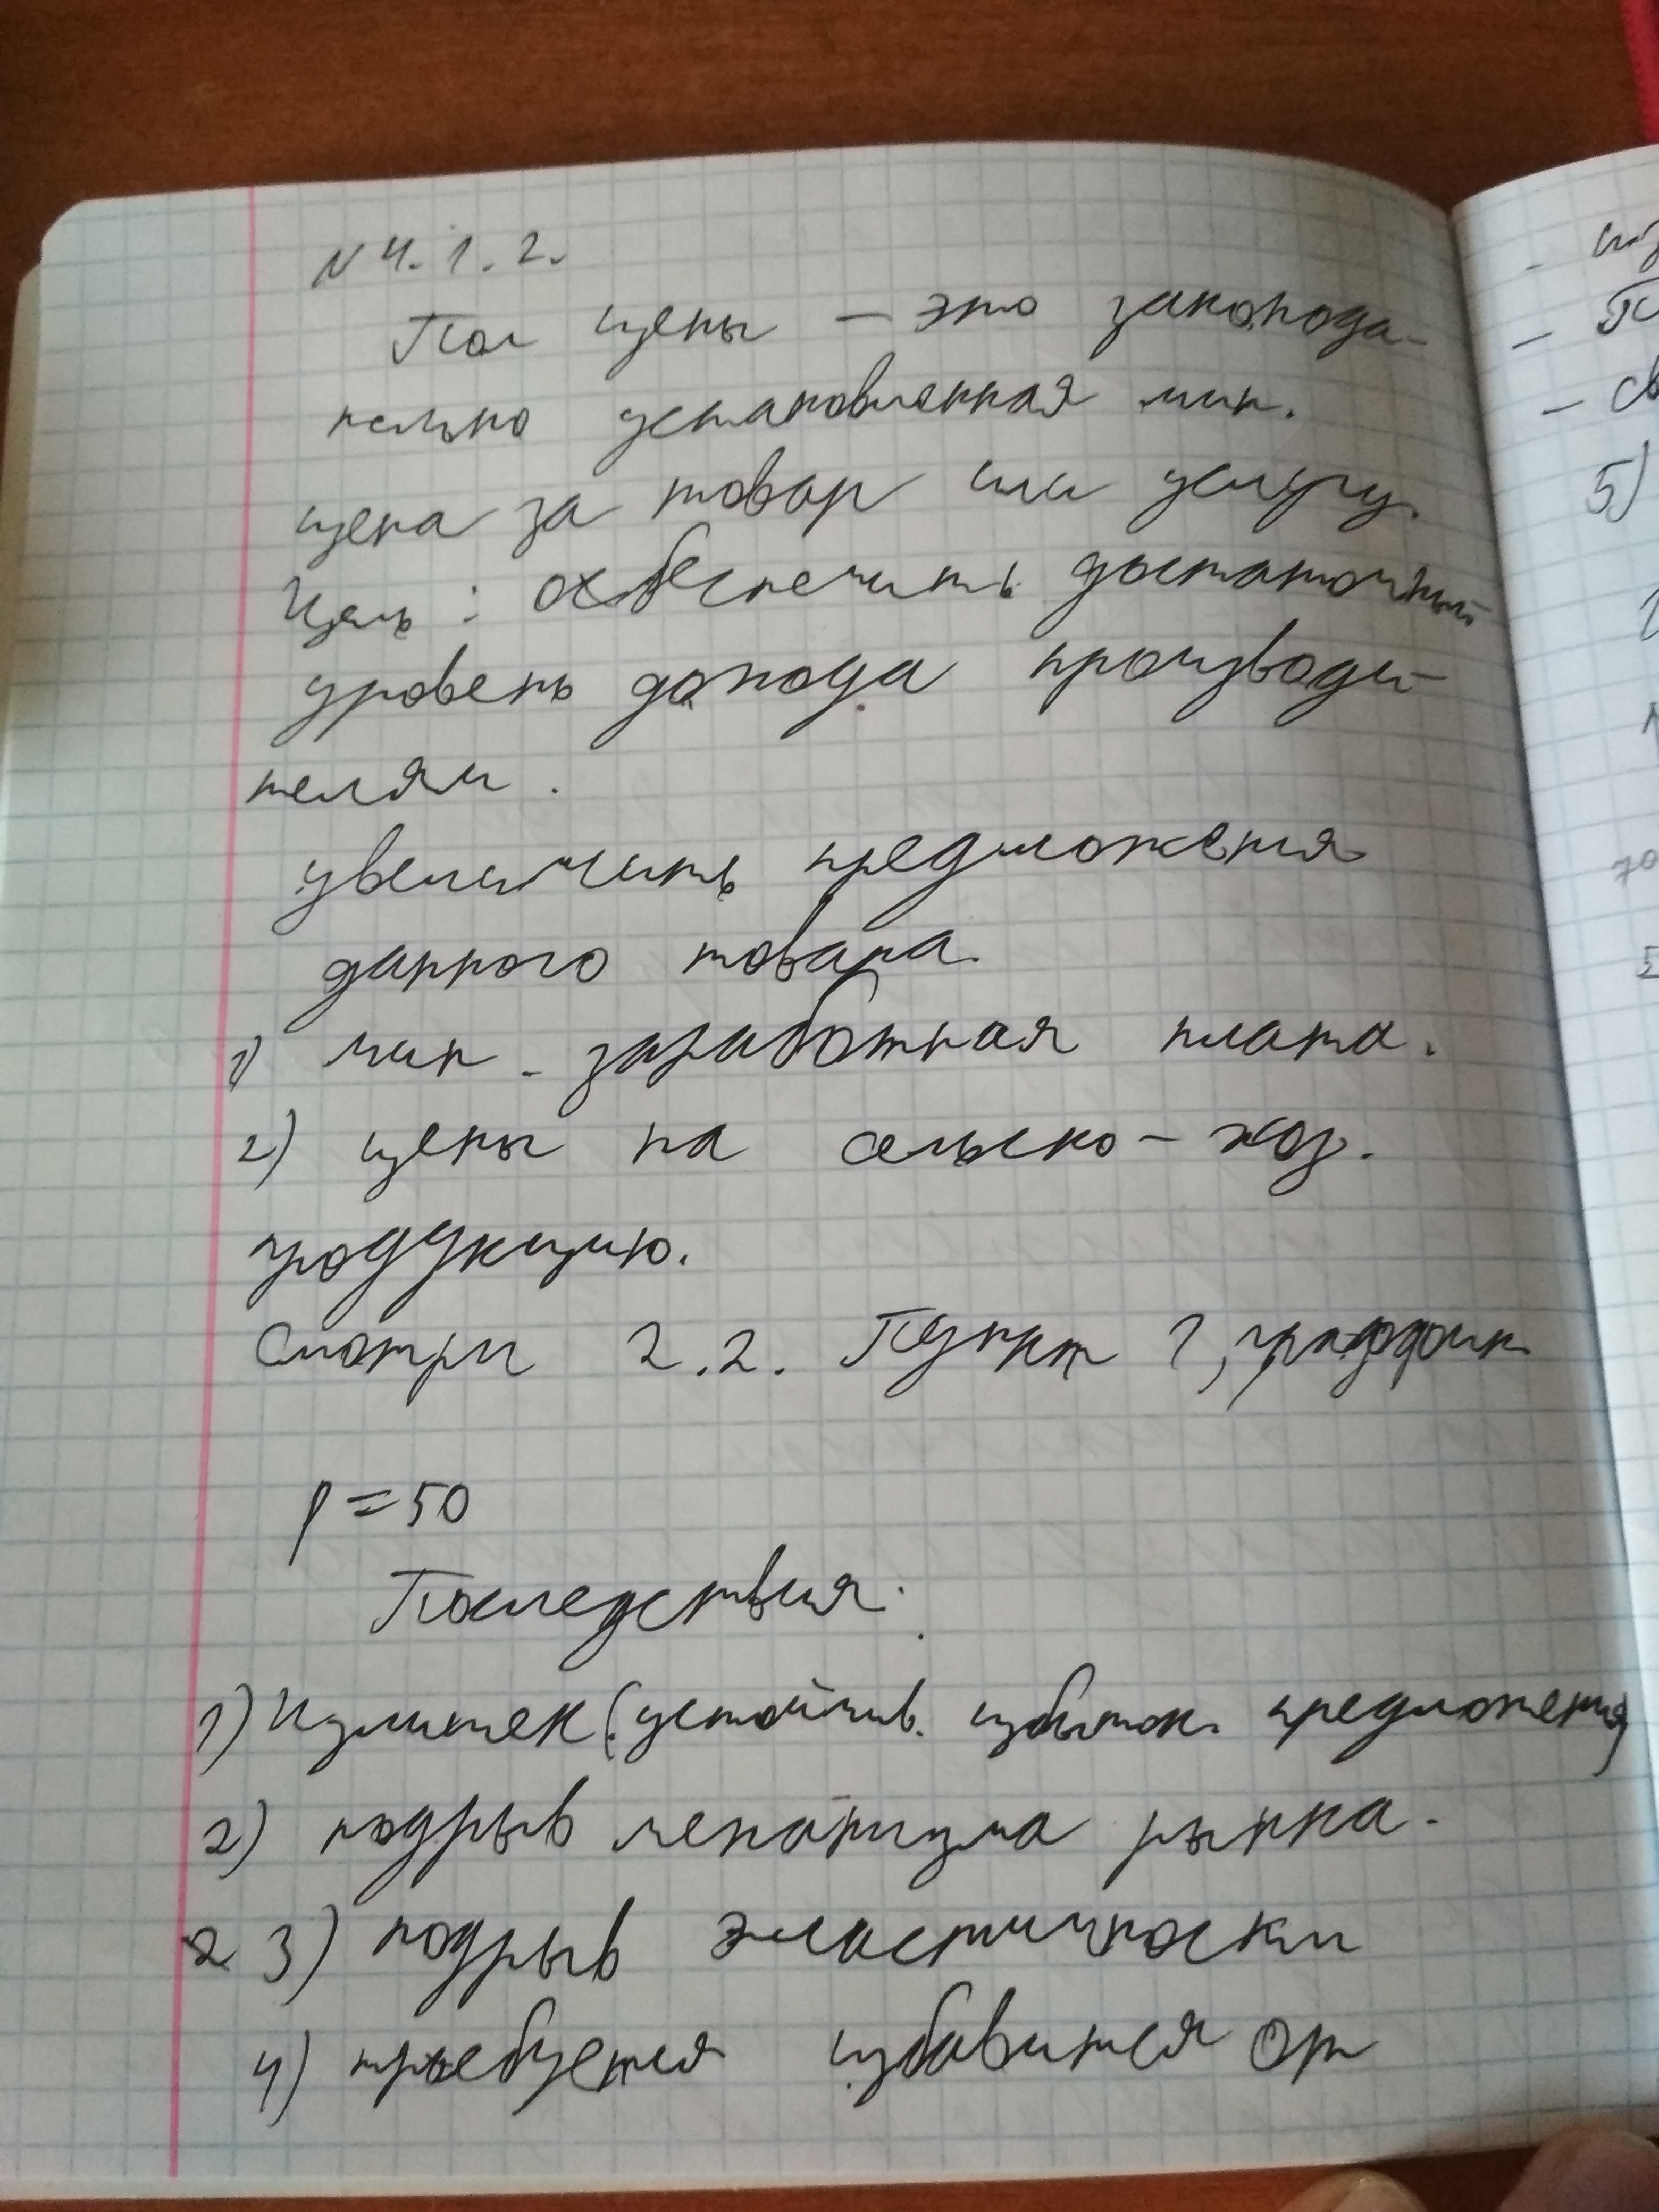 N 4.1.2.
Пол цены – это законода-
тельно установленная мин.
цена за товар или услугу.
Цель: обеспечить достаточный
уровень дохода производи-
телям.
увеличить предложения
данного товара.
1) мин. заработная плата.
2) цены на сельско-хоз.
продукцию.
Смотри 2.2. Пункт
P = 50
Последствия:
1) Излишек (устойчив. избыток. предложения)
2) подрыв механизма рынка.
3) подрыв эластичности
4) требуется избавится от
5)